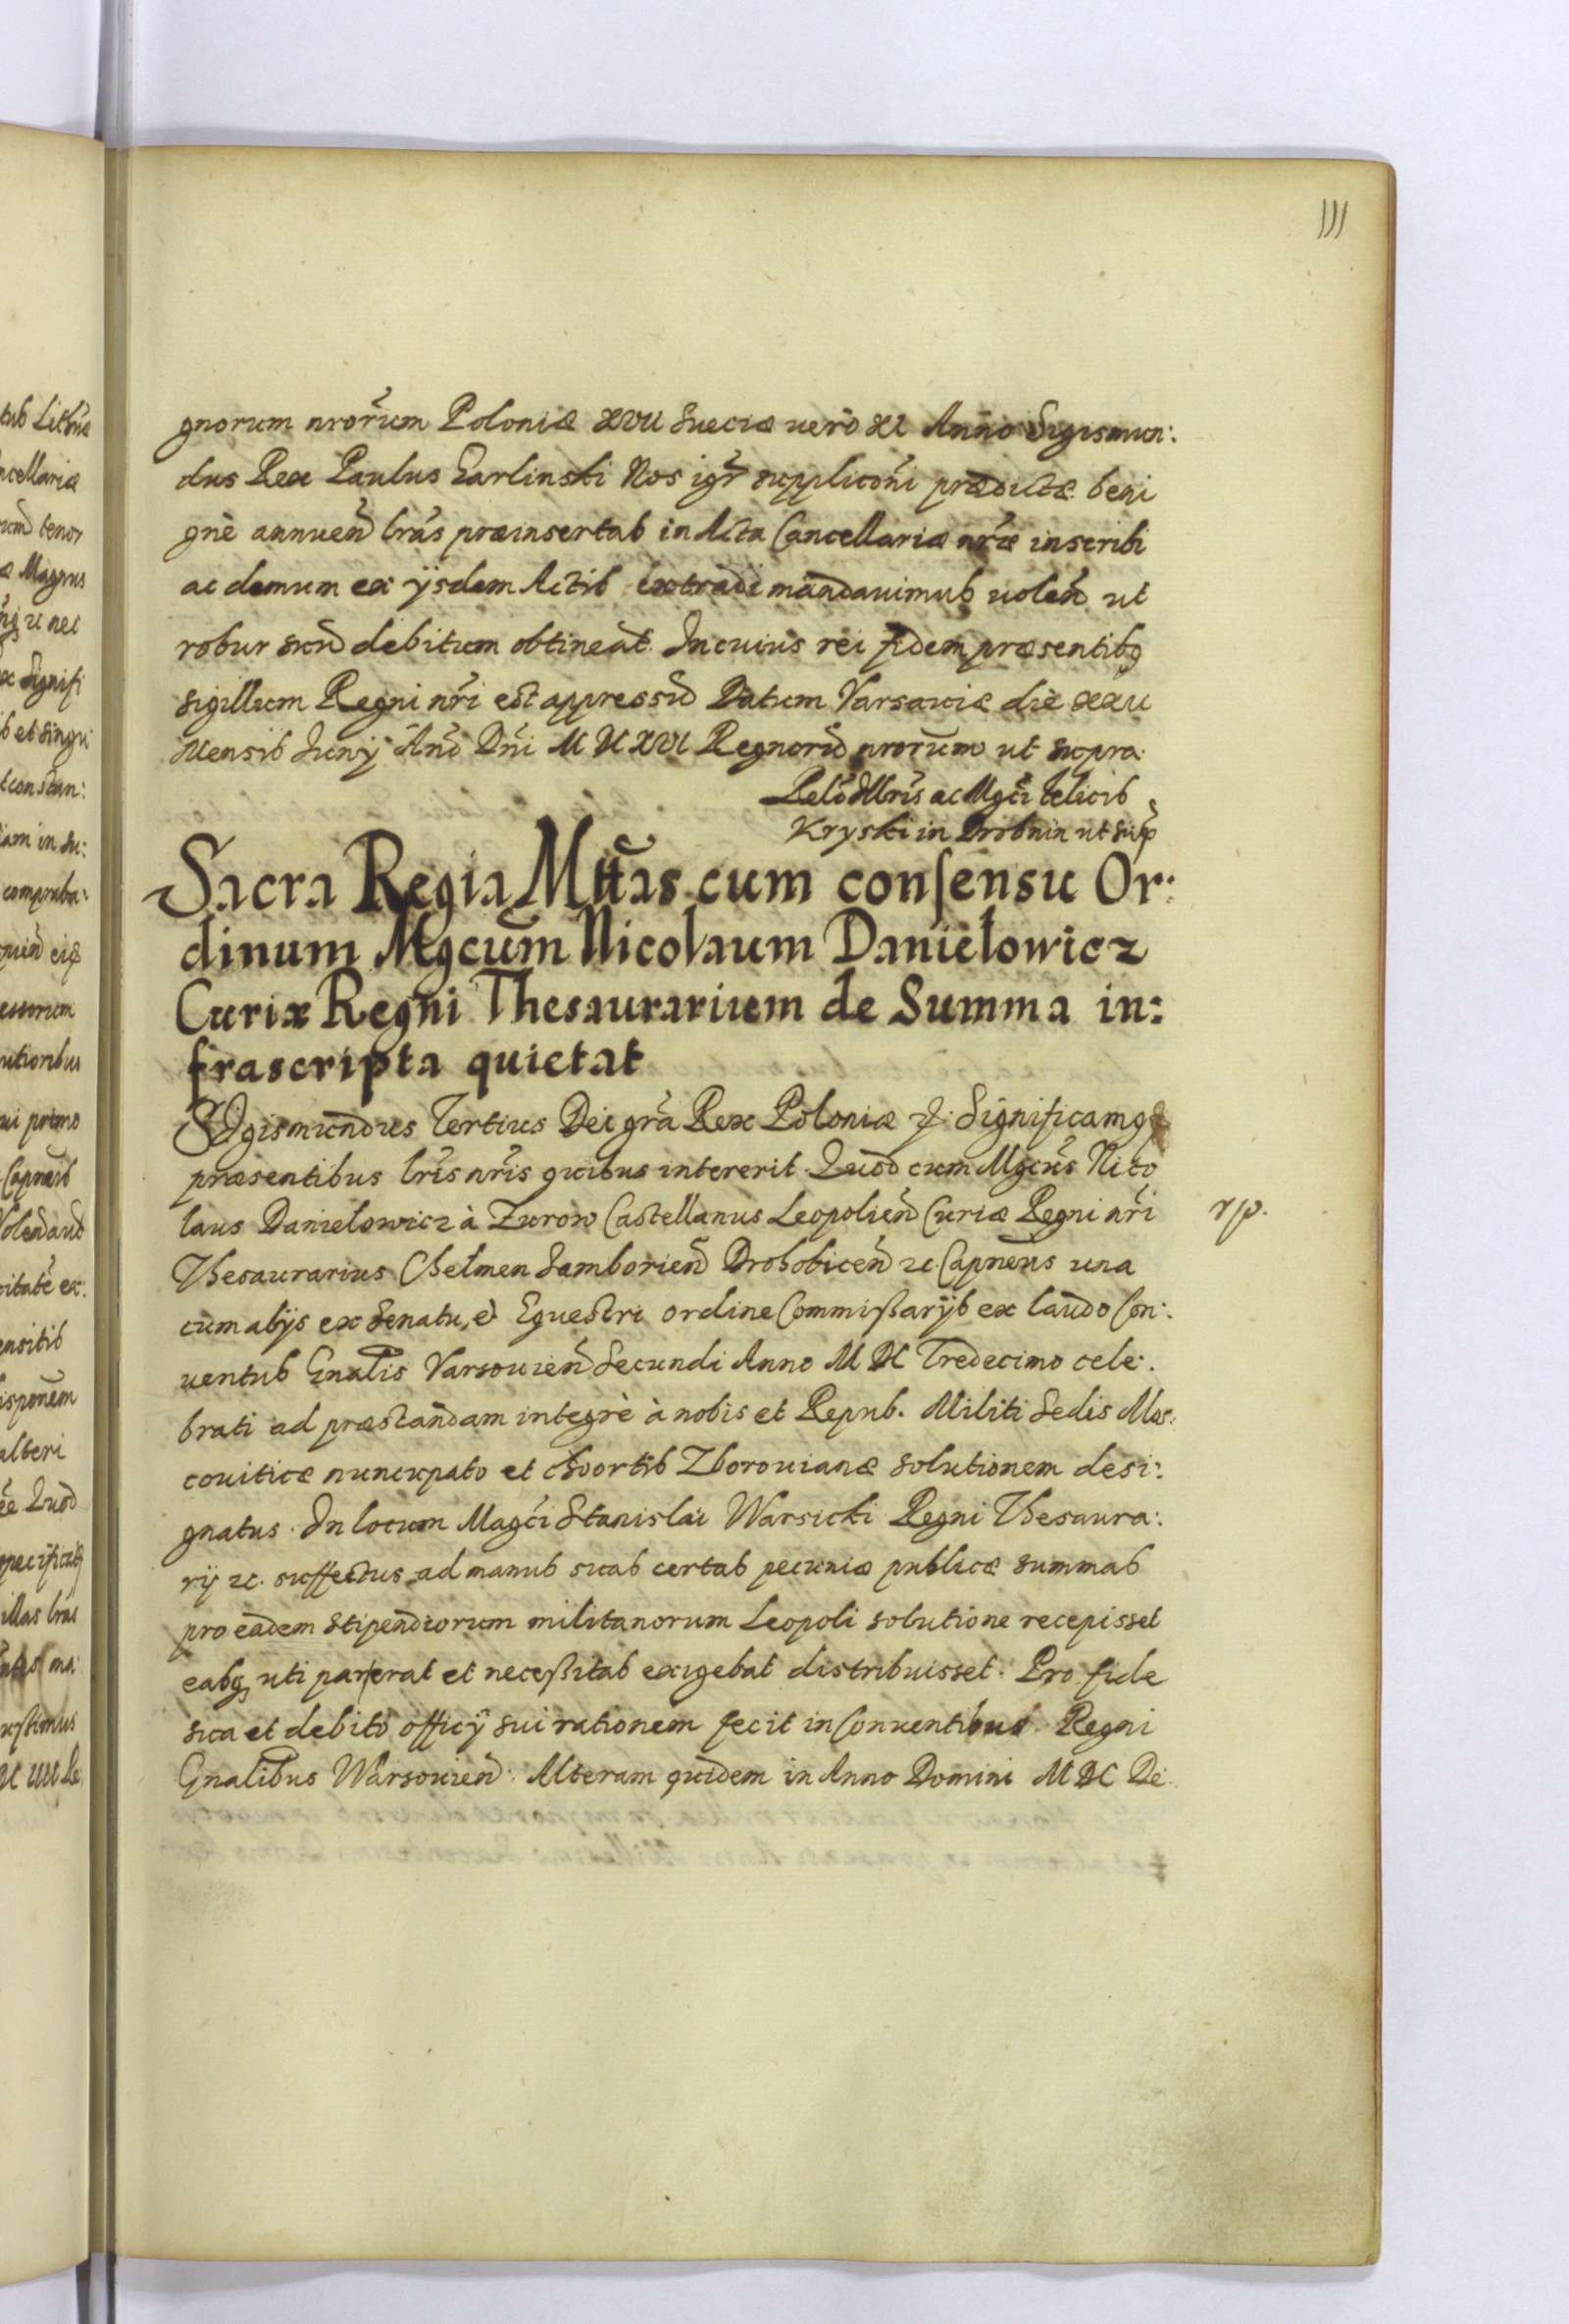 111
gnorum nrorum Poloniæ XVII Sueciæ uerò XI Anno Sigismun:
dus Rex Paulus Garlinski Nos igr suppliconi prædictæ beni
gnè annuen lras præinsertas in Acta Cancellariæ nræ inscribi
ac demum ex ijsdem Actis extradi mandauimus uolen ut
robur suu debitum obtineat. In cuius rei fidem præsentibq
sigillum Regni nri est appressu Datum Varsauiæ die XXV
Mensis Junij Ano Dni M D XVI Regnoru nrorum ut supra
Relo Illris ac Mgci Felicis
Kryski in Drobnin ut sup
Sacra Regia Mttas cum consensu Or:
dinum Mgcum Nicolaum Danielowicz
Curiæ Regni Thesaurarium de Summa in:
frascripta quietat
Sigismundus Tertius Dei gra Rex Poloniæ &: Significamq
præsentibus lris nris quibus intererit. Quod cum Mgcus Nico
laus Danielowicz à Zurow Castellanus Leopolien Curiæ Regni nri
rp.
Thesaurarius Chelmen Samborien Drohobicen &c. Capneus una
cum alijs ex Senatu, et Equestri ordine Commißarijs ex laudo Con:
uentus Gnalis Varsouien Secundi Anno M DC Tredecimo cele:
brati ad præstandam integrè à nobis et Repub. Militi Sedis Mos:
couiticæ nuncupato et Choortis Zborouianæ solutionem desi:
gnatus. In locum Magci Stanislai Warsicki Regni Thesaura:
rij &c. suffectus ad manus suas certas pecuniæ publicæ summas
pro eadem stipendiorum militanorum Leopoli solutione recepisset
easq uti par erat et neceßitas exigebat distribuisset. Pro fide
sua et debito officij sui rationem fecit in Conuentibus Regni
Gnalibus Warsouien: Alteram quidem in Anno Domini MDC De